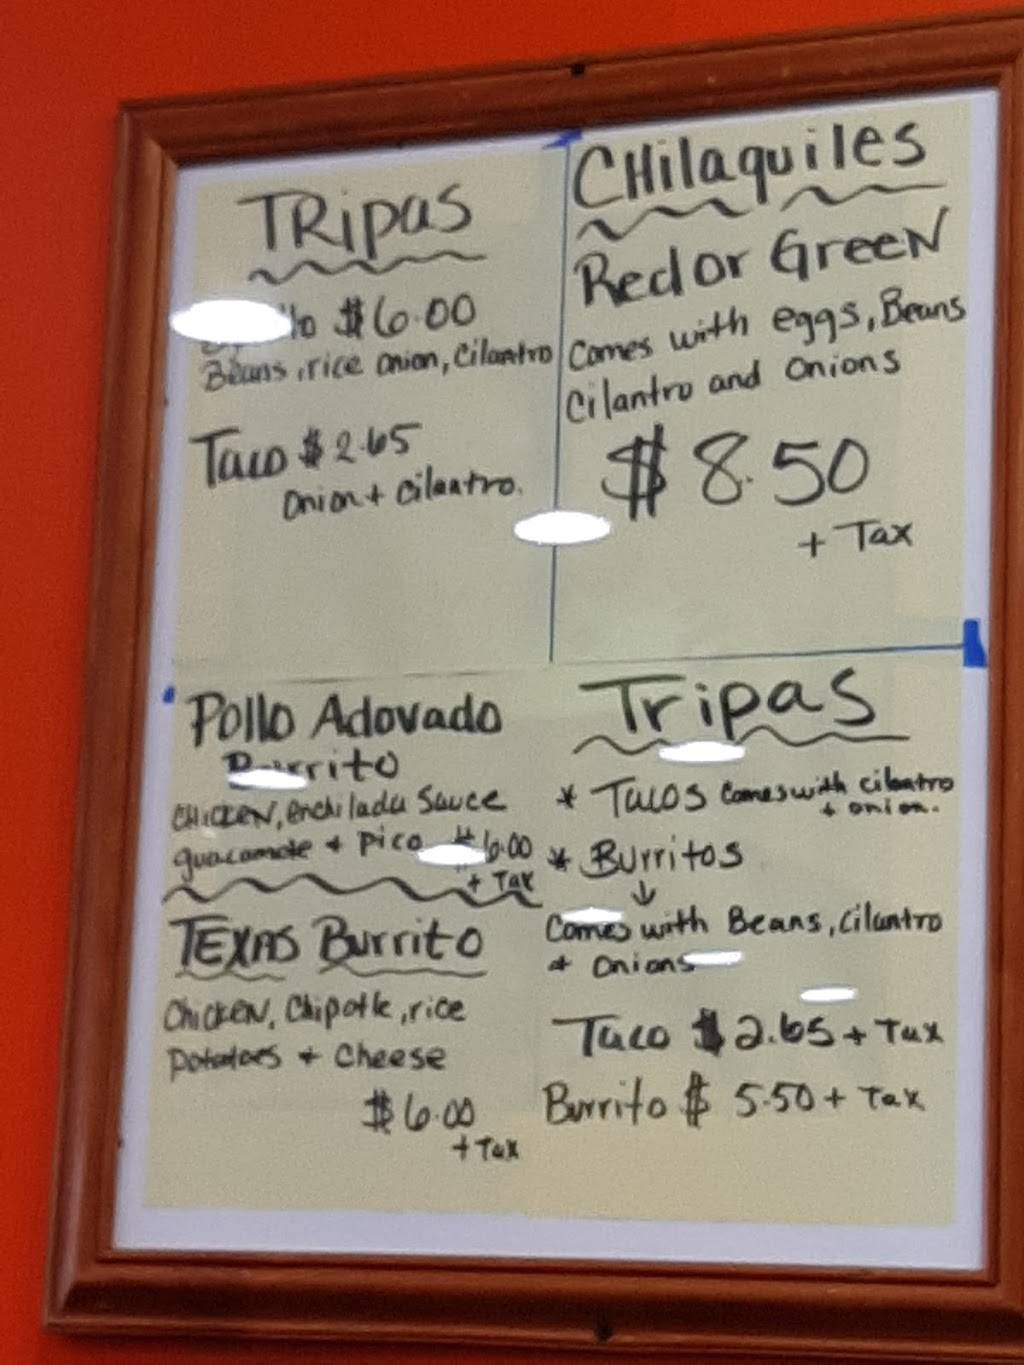 TRipas
$6.00
Beans, rice onion, Cilantro
Taco $2.65
onion + cilantro.
CHilaquiles
Red or GreeN
Comes with eggs, Beans
Cilantro and onions
$8.50
+ Tax
Pollo Adovado
Burrito
CHICKEN, enchilada Sauce
guacamole + pico $6.00
+ Tax
TEXAS Burrito
ChicKeN, Chipotle, rice
Potatoes + Cheese
$6.00
+ Tax
Tripas
* Tacos Comes with cilantro
+ onion.
* Burritos
↓
Comes with Beans, Cilantro
+ onions
Taco $2.65 + Tax
Burrito $ 5.50 + Tax